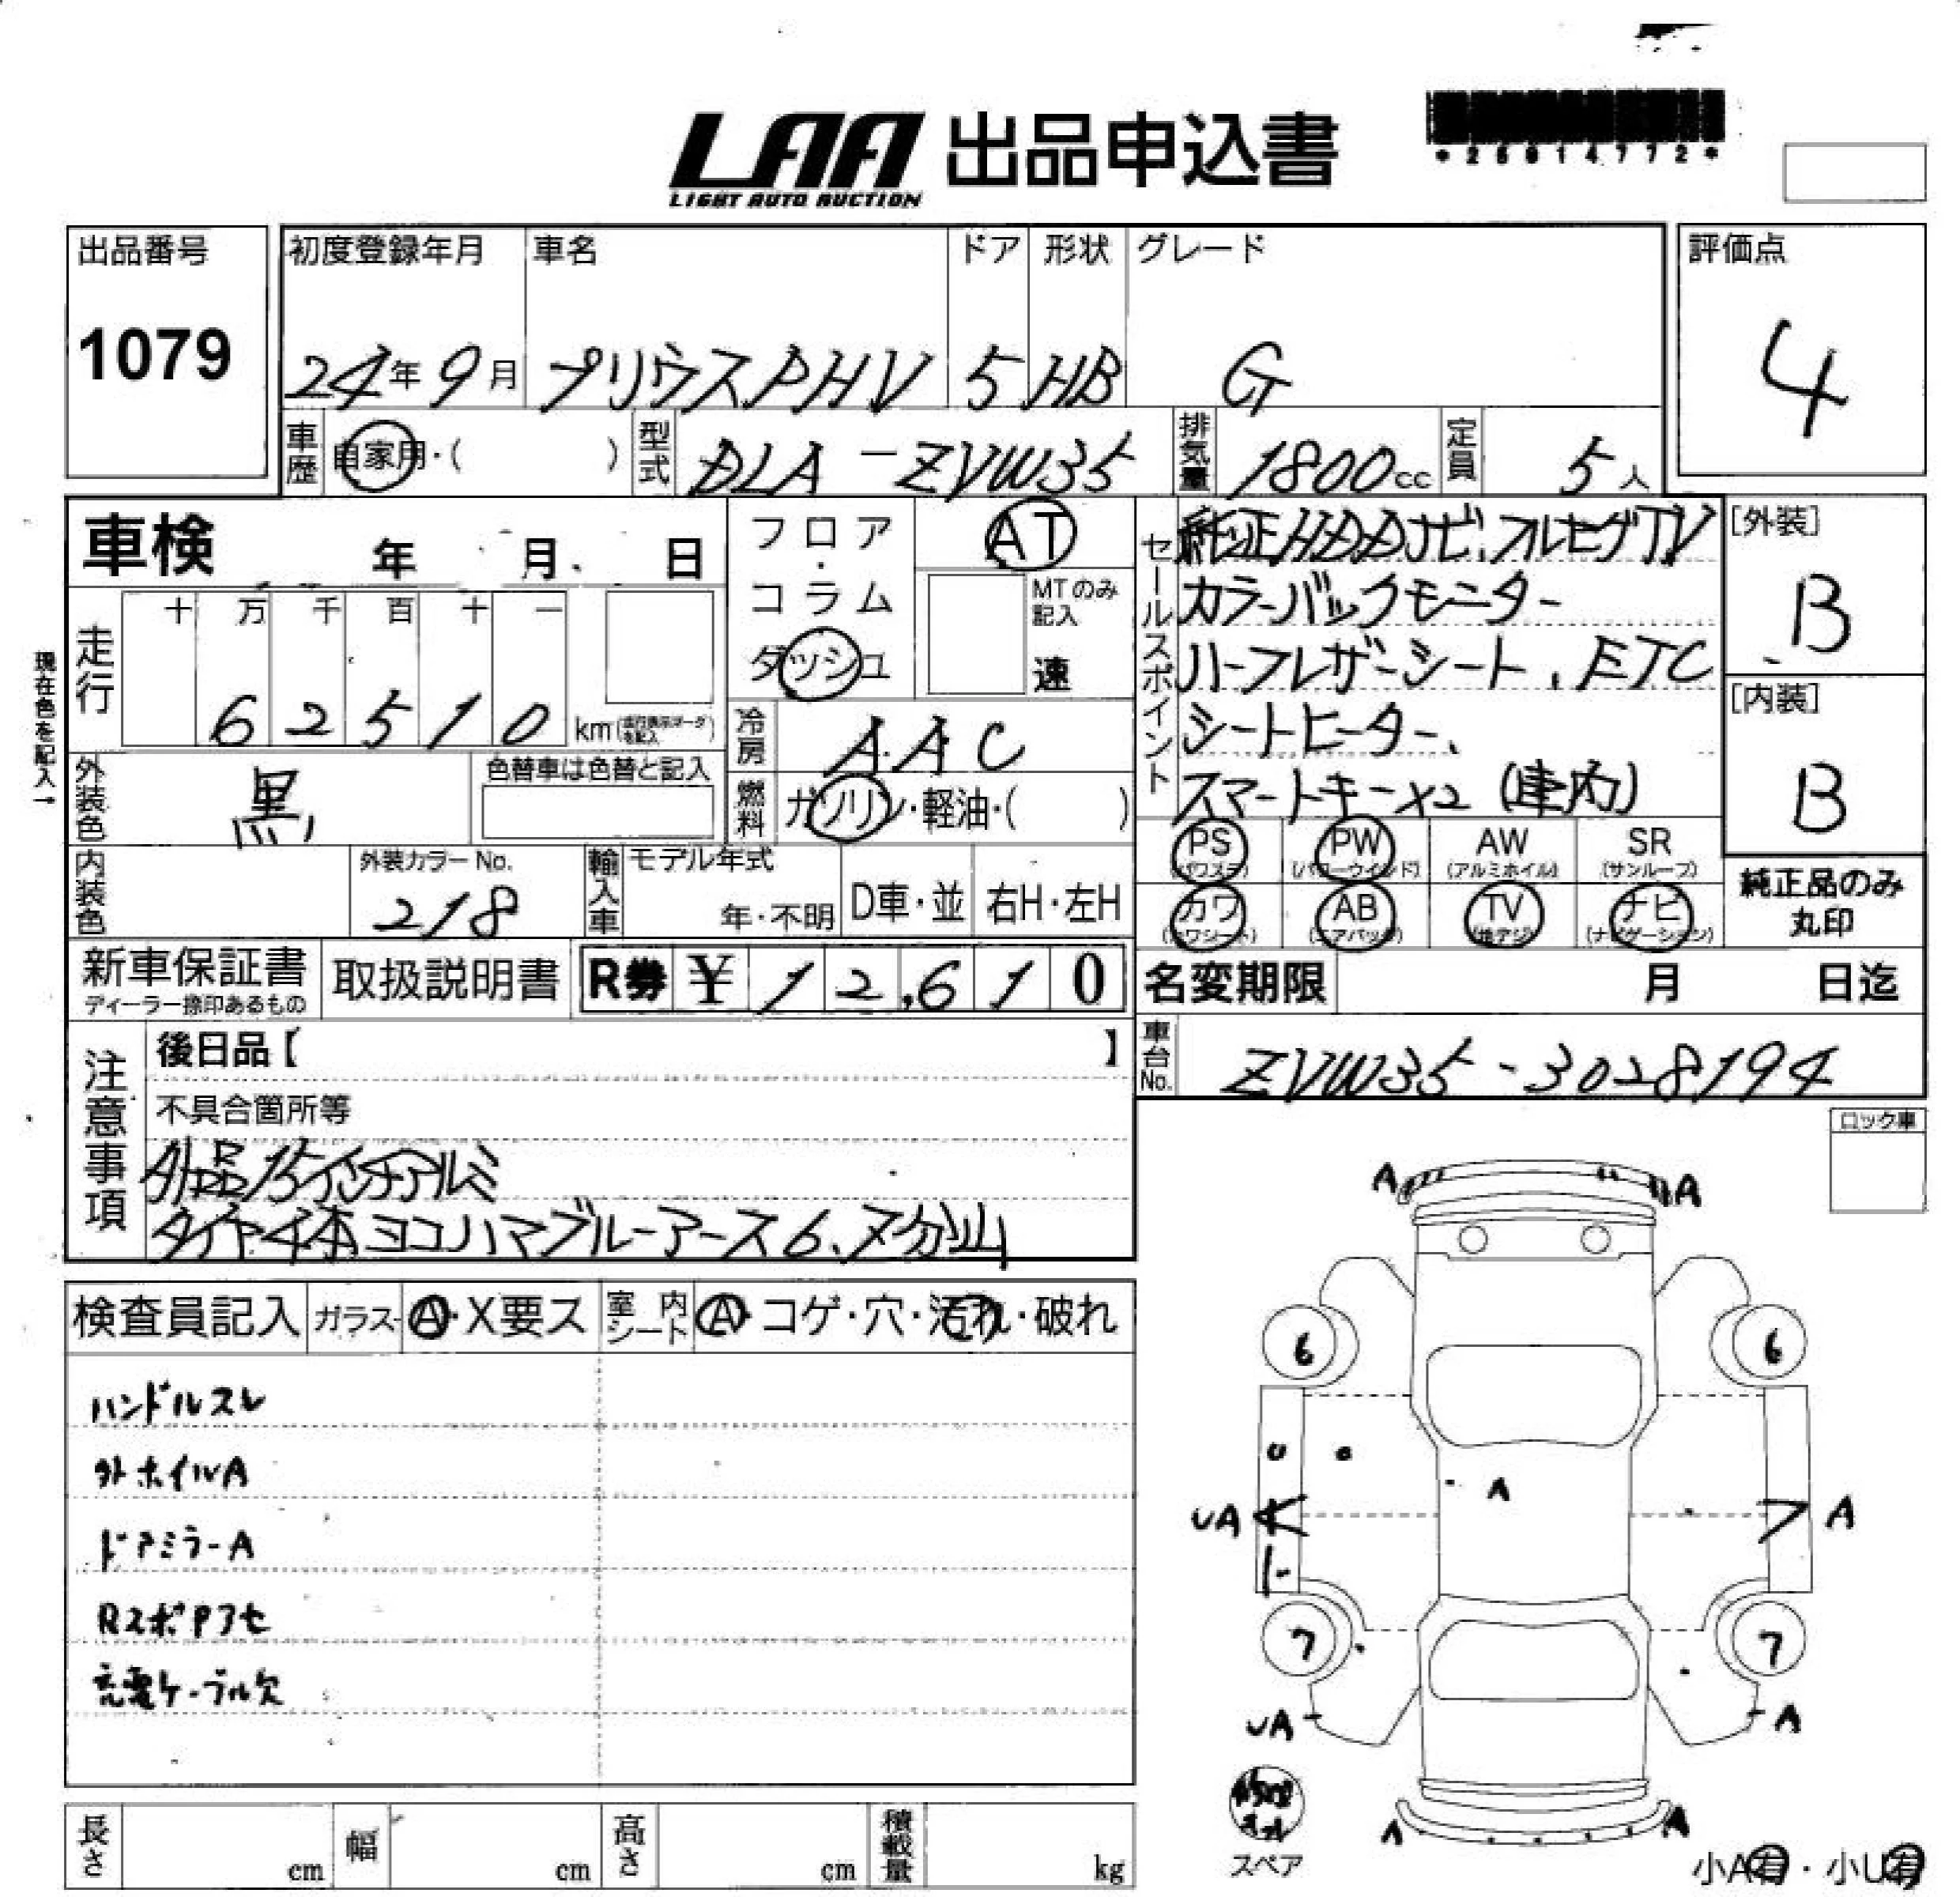 LAA 出品申込書
LIGHT AUTO AUCTION
出品番号
1079
初度登録年月 車名 ドア 形状 グレード
24年9月 プリウスPHV 5 HB G
評価点
4
車歴 自家用・( ) 型式 DLA-ZVW35 排気量 1800cc 定員 5人
車検 年 月 日
フロア・コラム ダッシュ
AT
MTのみ記入
速
現在色を記入→
走行
十 万 千 百 十 一
6 2 5 1 0 km
冷房 AAC
外装色 黒
色替車は色替と記入
燃料 ガソリン・軽油・( )
内装色
外装カラーNo.
218
輸入車 モデル年式
年・不明 D車・並 右H・左H
セールスポイント
純正HDDナビ、フルセグTV
カラーバックモニター
ハーフレザーシート、ETC
シートヒーター、
スマートキーx2 (車内)
[外装]
B
[内装]
B
PS PW AW SR
(パワステ) (パワーウインド) (アルミホイル) (サンルーフ)
カワ AB TV ナビ
(カワシート) (エアバッグ) (地デジ) (ナビゲーション)
純正品のみ
丸印
新車保証書
ディーラー捺印あるもの
取扱説明書
R券 ¥12,610
名変期限 月 日迄
車台No. ZVW35-3028194
注意事項
後日品【 】
不具合箇所等
外品15インチアルミ
タイヤ4本ヨコハマブルーアース6、7分山
ロック車
検査員記入 ガラス A・X要ス 室内シート A・コゲ・穴・汚れ・破れ
ハンドルスレ
外ホイルA
ドアミラーA
RスポPアセ
充電ケーブル欠
A A
6 6
U A
UA A
7 7
UA A
A A
スペア
小A有・小U有
長さ cm 幅 cm 高さ cm 積載量 kg